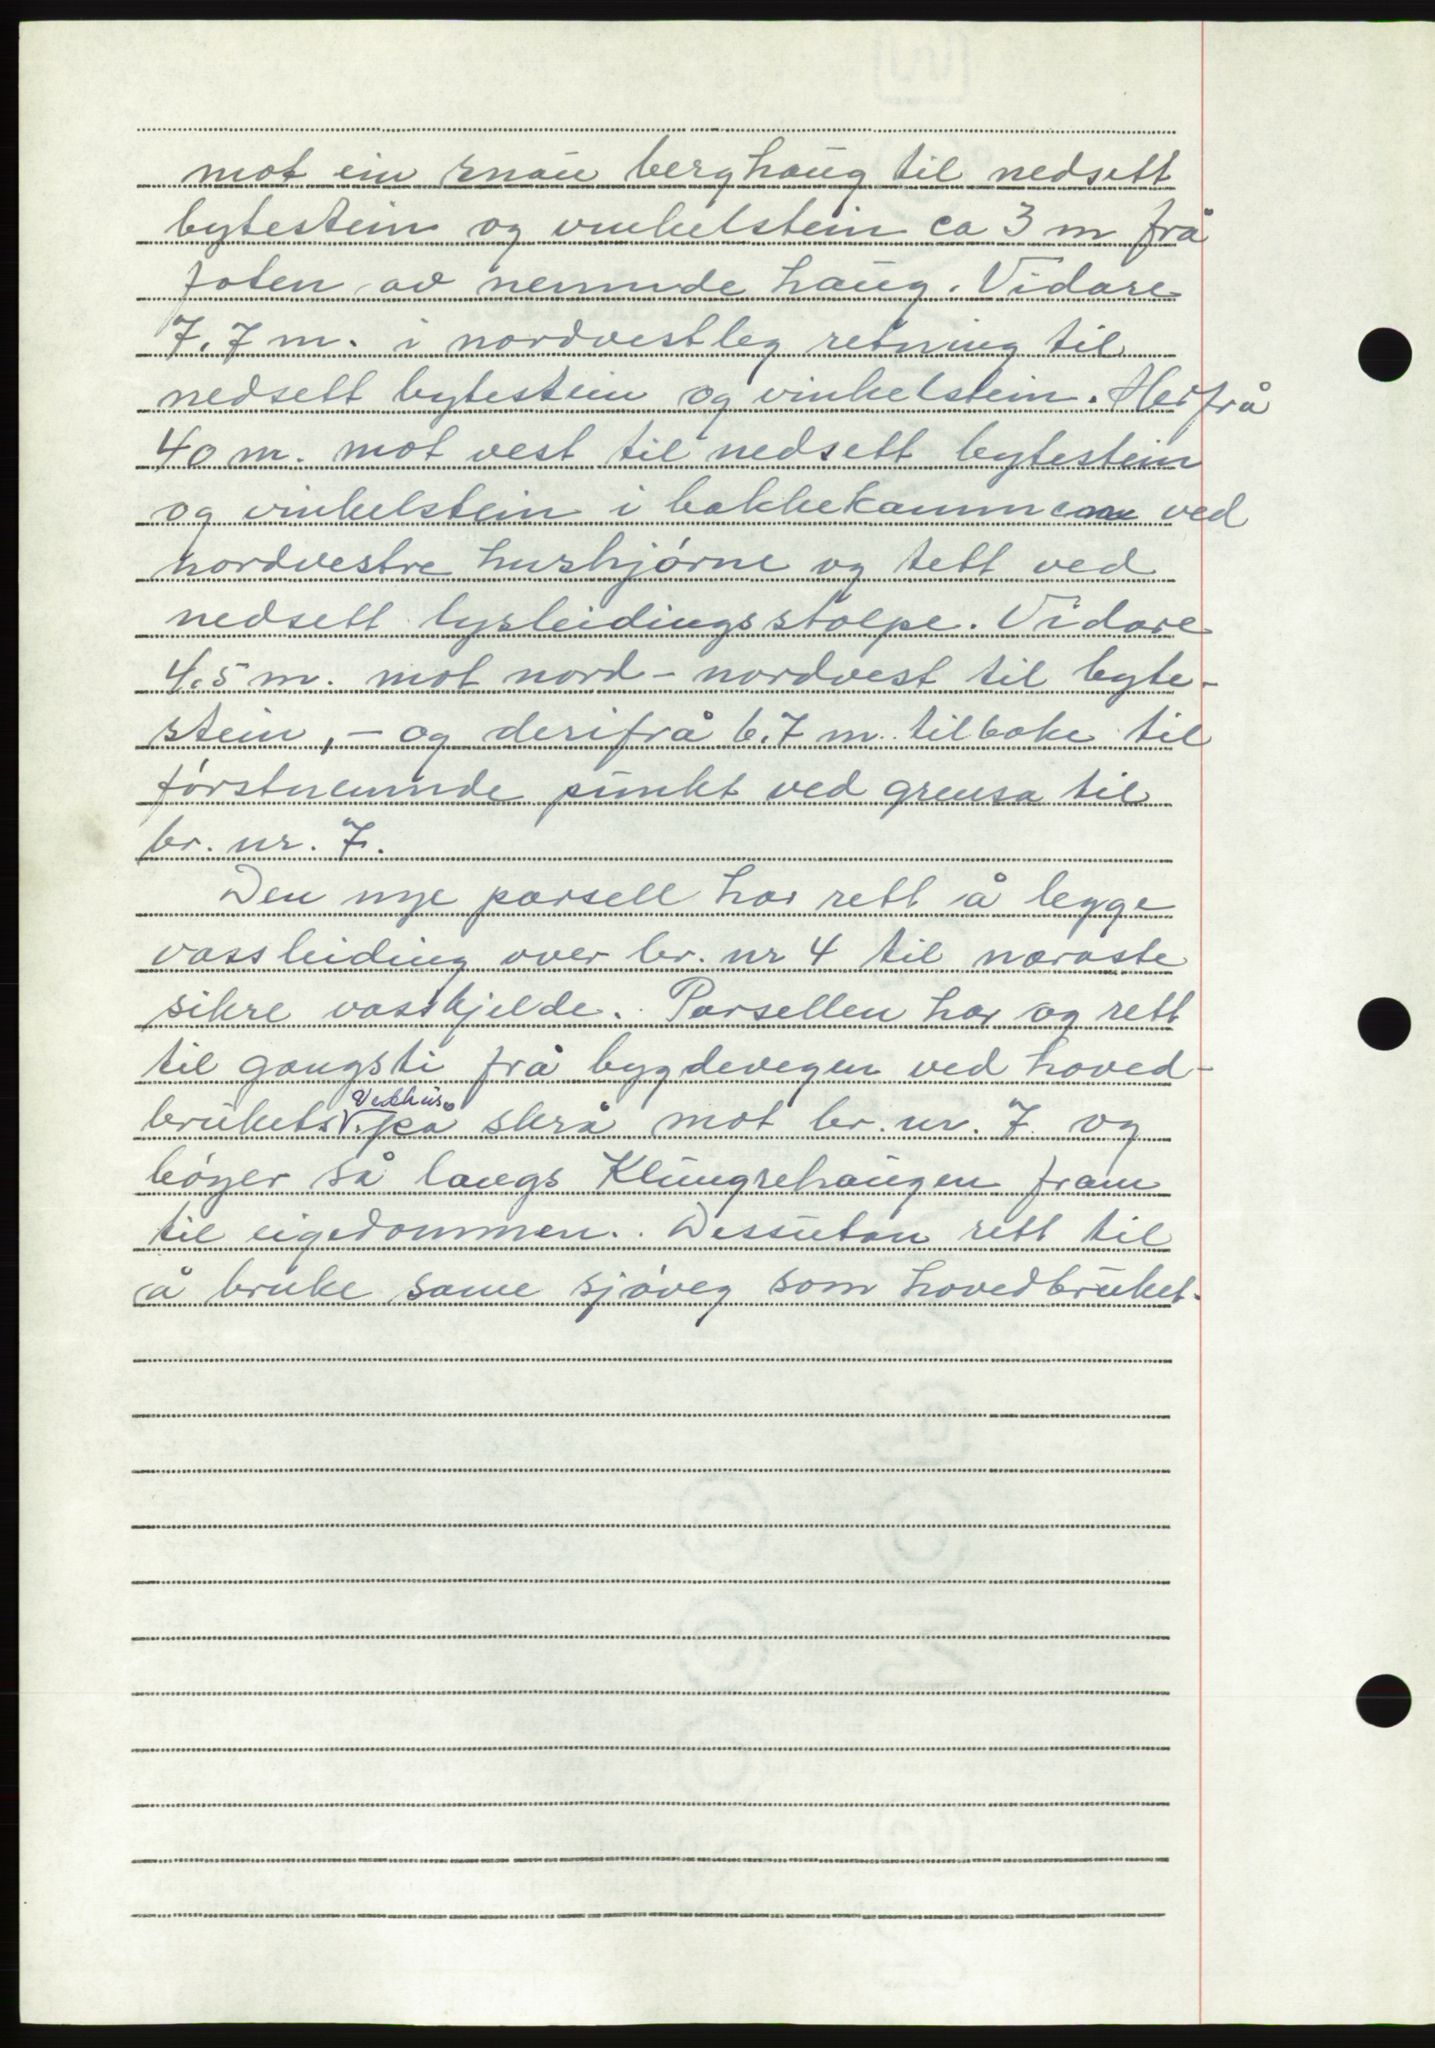 mot ein snau berghaug til nedsett
bytestein og vinkelstein ca 3 m frå
foten av nemnde haug. Vidare
7.7 m. i nordvestleg retning til
nedsett bytestein og vinkelstein. Herfrå
40 m. mot vest til nedsett bytestein
og vinkelstein i bakkekammen ved
nordvestre hushjørne og tett ved
nedsett lysleidingsstolpe. Vidare
4.5 m. mot nord - nordvest til byte-
stein, - og derifrå 6.7 m. tilbake til
førstnemnde punkt ved grensa til
br. nr. 7.
Den nye parsell har rett å legge
vassleiding over br. nr 4 til næraste
sikre vasskjelde. Parsellen har og rett
til gangsti frå bygdevegen ved hoved-
Vedhus
brukets V. på skrå mot br. nr. 7 og
bøyer så langs Klungrehaugen fram
til eigedommen. Dessutan rett til
å bruke same sjøveg som hovedbruket.